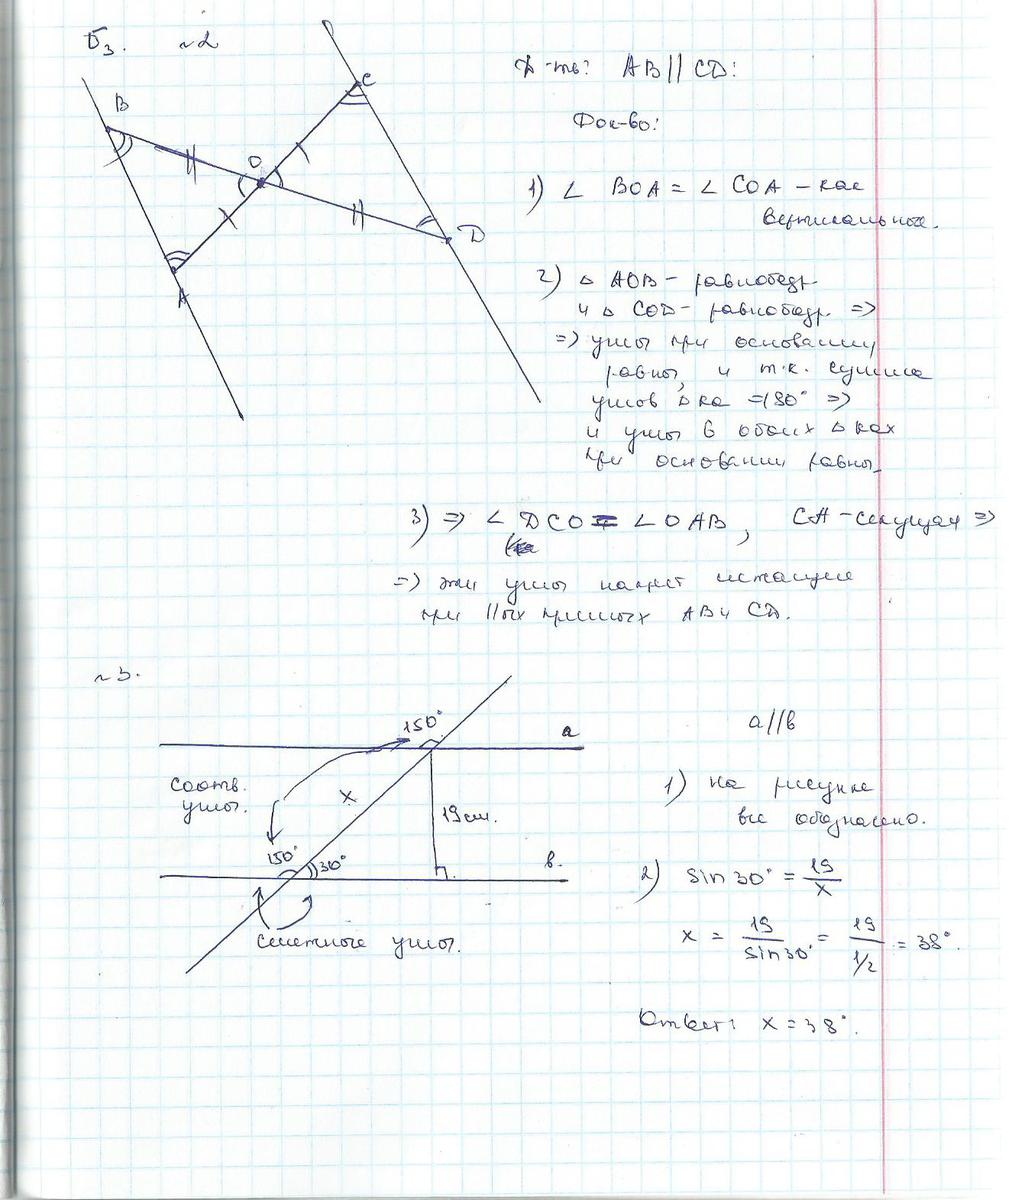 Б3. №2
Д-ть: AB || CD:
Док-во:
B
C
O
D
A
1) ∠ BOA = ∠ COA – как
вертикальные.
2) △ AOB – равнобедр
и △ COD – равнобедр =>
=> углы при основании
равны, и т.к. сумма
углов △ка = 180° =>
и углы в обоих △ках
при основании равны.
3) => ∠ DCO = ∠ OAB, CA – секущая =>
=> эти углы накрест лежащие
при ||ых прямых AB и CD.
№3.
150°
a
a//b
соотв.
углы.
x
19 см.
1) На рисунке
все обозначено.
150°
30°
b.
2) sin 30° = 19/x
смежные углы.
x = 19/sin 30° = 19/1/2 = 38°.
Ответ: x = 38°.